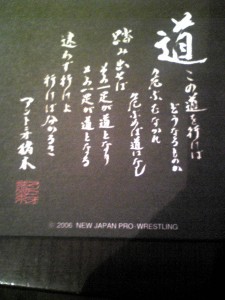 道
この道を行けば
どうなるものか
危ぶむなかれ
危ぶめば道はなし
踏み出せば
その一足が道となり
その一足が道となる
迷わず行けよ
行けばわかるさ
アントニオ猪木
© 2006 NEW JAPAN PRO-WRESTLING